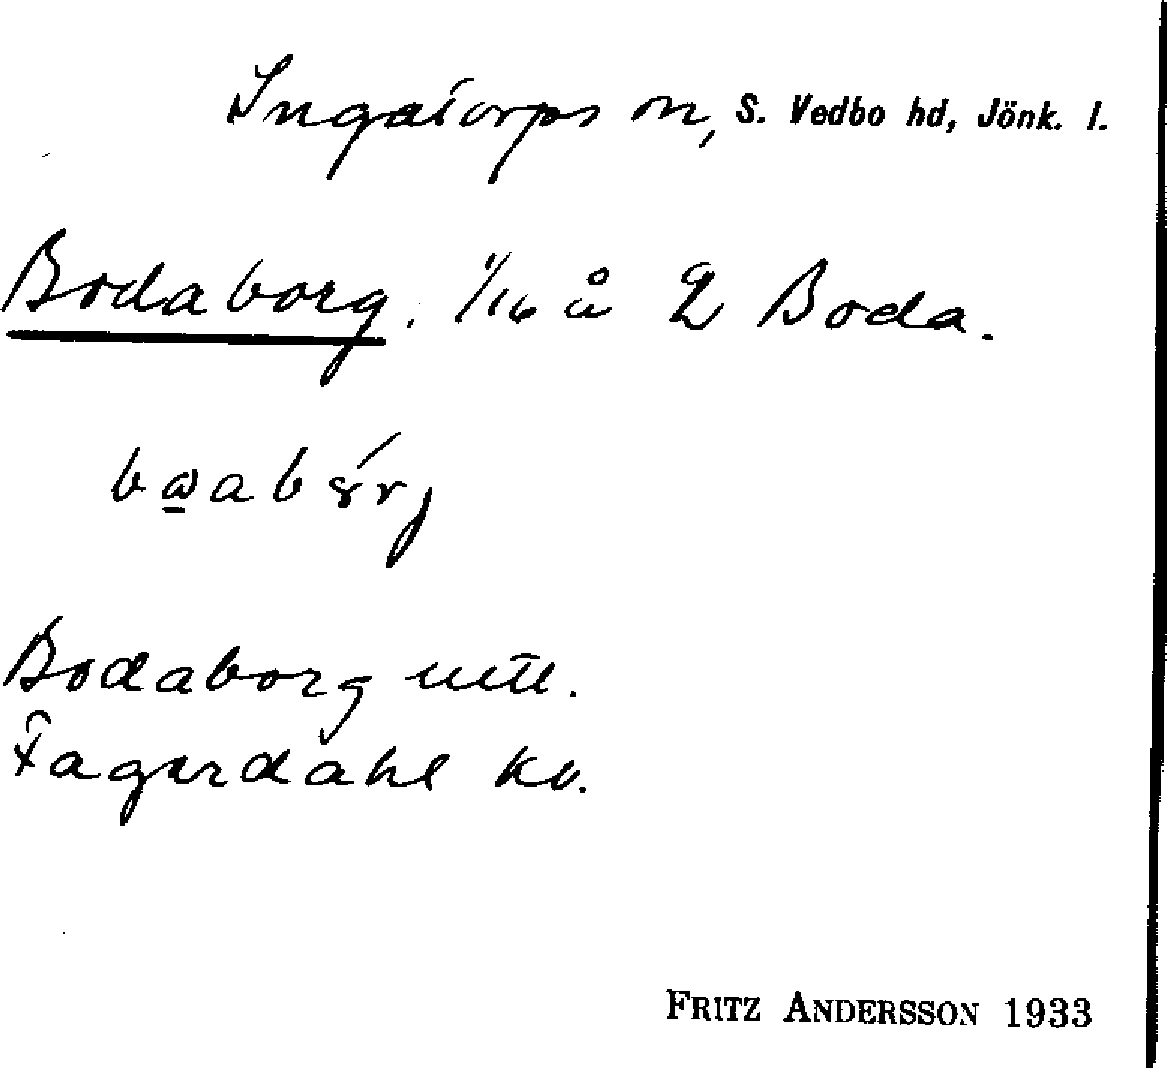 Ingatorps sn, S. Vedbo hd, Jönk. l.
Bodaborg. 1/16 å 2 Boda.
Bodaborg uttl.
Fagerdahl kv.
FRITZ ANDERSSON 1933